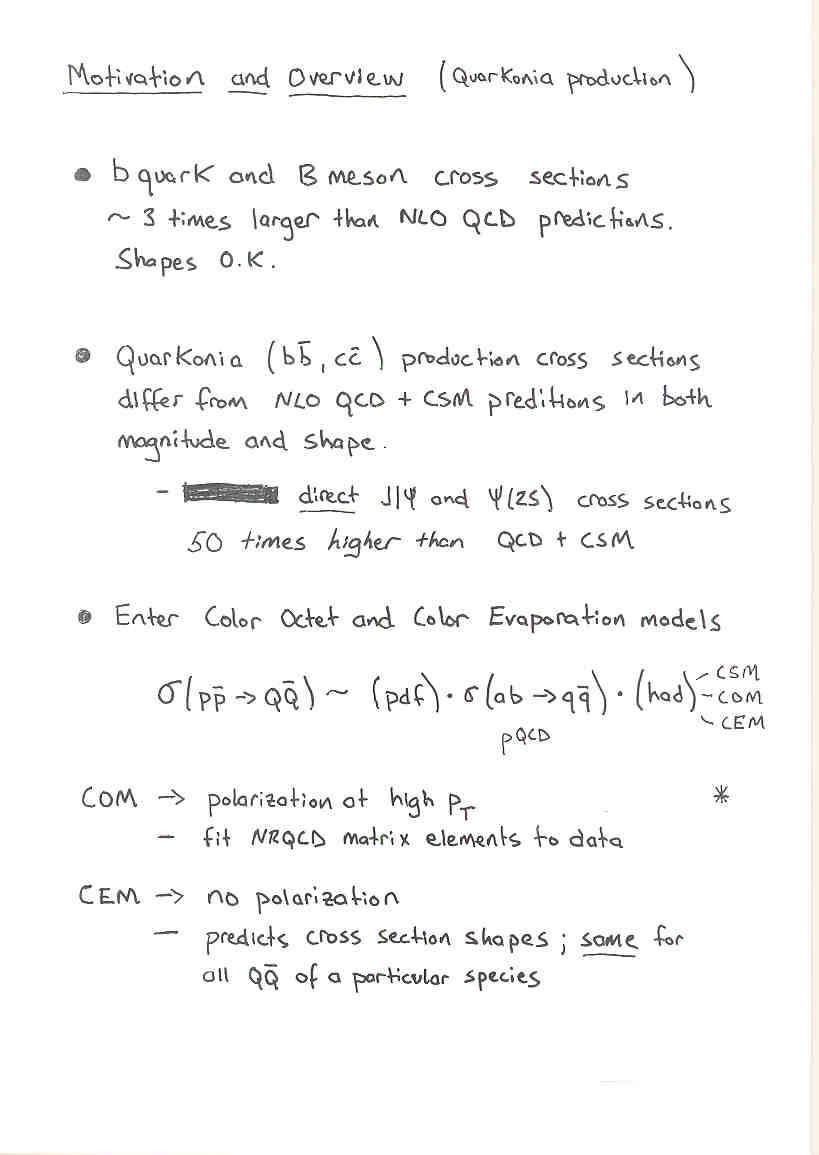 Motivation and Overview (Quarkonia production)
• b quark and B meson cross sections
~ 3 times larger than NLO QCD predictions.
Shapes O.K.
• Quarkonia (bb̄, cc̄) production cross sections
differ from NLO QCD + CSM preditions in both
magnitude and shape.
- direct J/ψ and ψ(2S) cross sections
50 times higher than QCD + CSM
• Enter Color Octet and Color Evaporation models
σ(pp̄ → QQ̄) ~ (pdf) · σ(ab → qq̄) · (had) – CSM – COM – CEM
pQCD
COM → polarization at high P_T *
- fit NRQCD matrix elements to data
CEM → no polarization
- predicts cross section shapes ; same for
all QQ̄ of a particular species